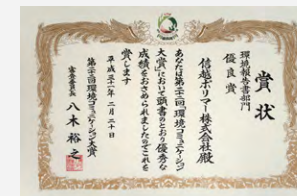 賞状
環境報告書部門
優良賞
信越ポリマー株式会社殿
あなたは第二十二回環境コミュニケーション
大賞において頭書のとおり優秀な
成績をおさめられましたのでこれを
賞します
平成三十一年二月二十日
第二十二回環境コミュニケーション大賞
審査委員長 八木裕之